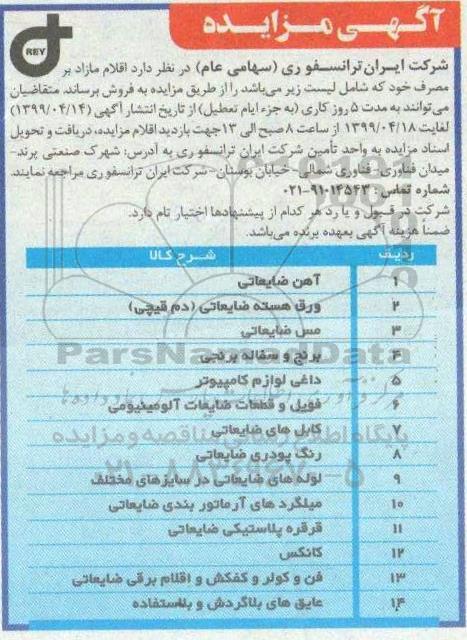 آگهی مزایده
REY
شرکت ایران ترانسفو ری (سهامی عام) در نظر دارد اقلام مازاد بر
مصرف خود که شامل لیست زیر می‌باشد را از طریق مزایده به فروش برساند. متقاضیان
می‌توانند به مدت ۵ روز کاری (به جزء ایام تعطیل) از تاریخ انتشار آگهی (۱۳۹۹/۰۴/۱۴)
لغایت ۱۳۹۹/۰۴/۱۸ از ساعت ۸ صبح الی ۱۳ جهت بازدید اقلام مزایده، دریافت و تحویل
اسناد مزایده به واحد تأمین شرکت ایران ترانسفو ری به آدرس: شهرک صنعتی پرند-
میدان فناوری- فناوری شمالی- خیابان بوستان- شرکت ایران ترانسفو ری مراجعه نمایند.
شماره تماس: ۹۱۰۱۴۵۴۳-۰۲۱
شرکت در قبول و یا رد هر کدام از پیشنهادها اختیار تام دارد.
ضمناً هزینه آگهی بعهده برنده می‌باشد.
ردیف شرح کالا
۱ آهن ضایعاتی
۲ ورق هسته ضایعاتی (دم قیچی)
۳ مس ضایعاتی
۴ برنج و سفاله برنجی
ParsNamadData
۵ داغی لوازم کامپیوتر
۶ فویل و قطعات ضایعات آلومینیومی
۷ کابل های ضایعاتی
پایگاه اطلاع رسانی مناقصه و مزایده
۸ رنگ پودری ضایعاتی
۹ لوله های ضایعاتی در سایزهای مختلف
۱۰ میلگرد های آرماتور بندی ضایعاتی
۱۱ قرقره پلاستیکی ضایعاتی
۱۲ کانکس
۱۳ فن و کولر و کفکش و اقلام برقی ضایعاتی
۱۴ عایق های بلاگردش و بلااستفاده